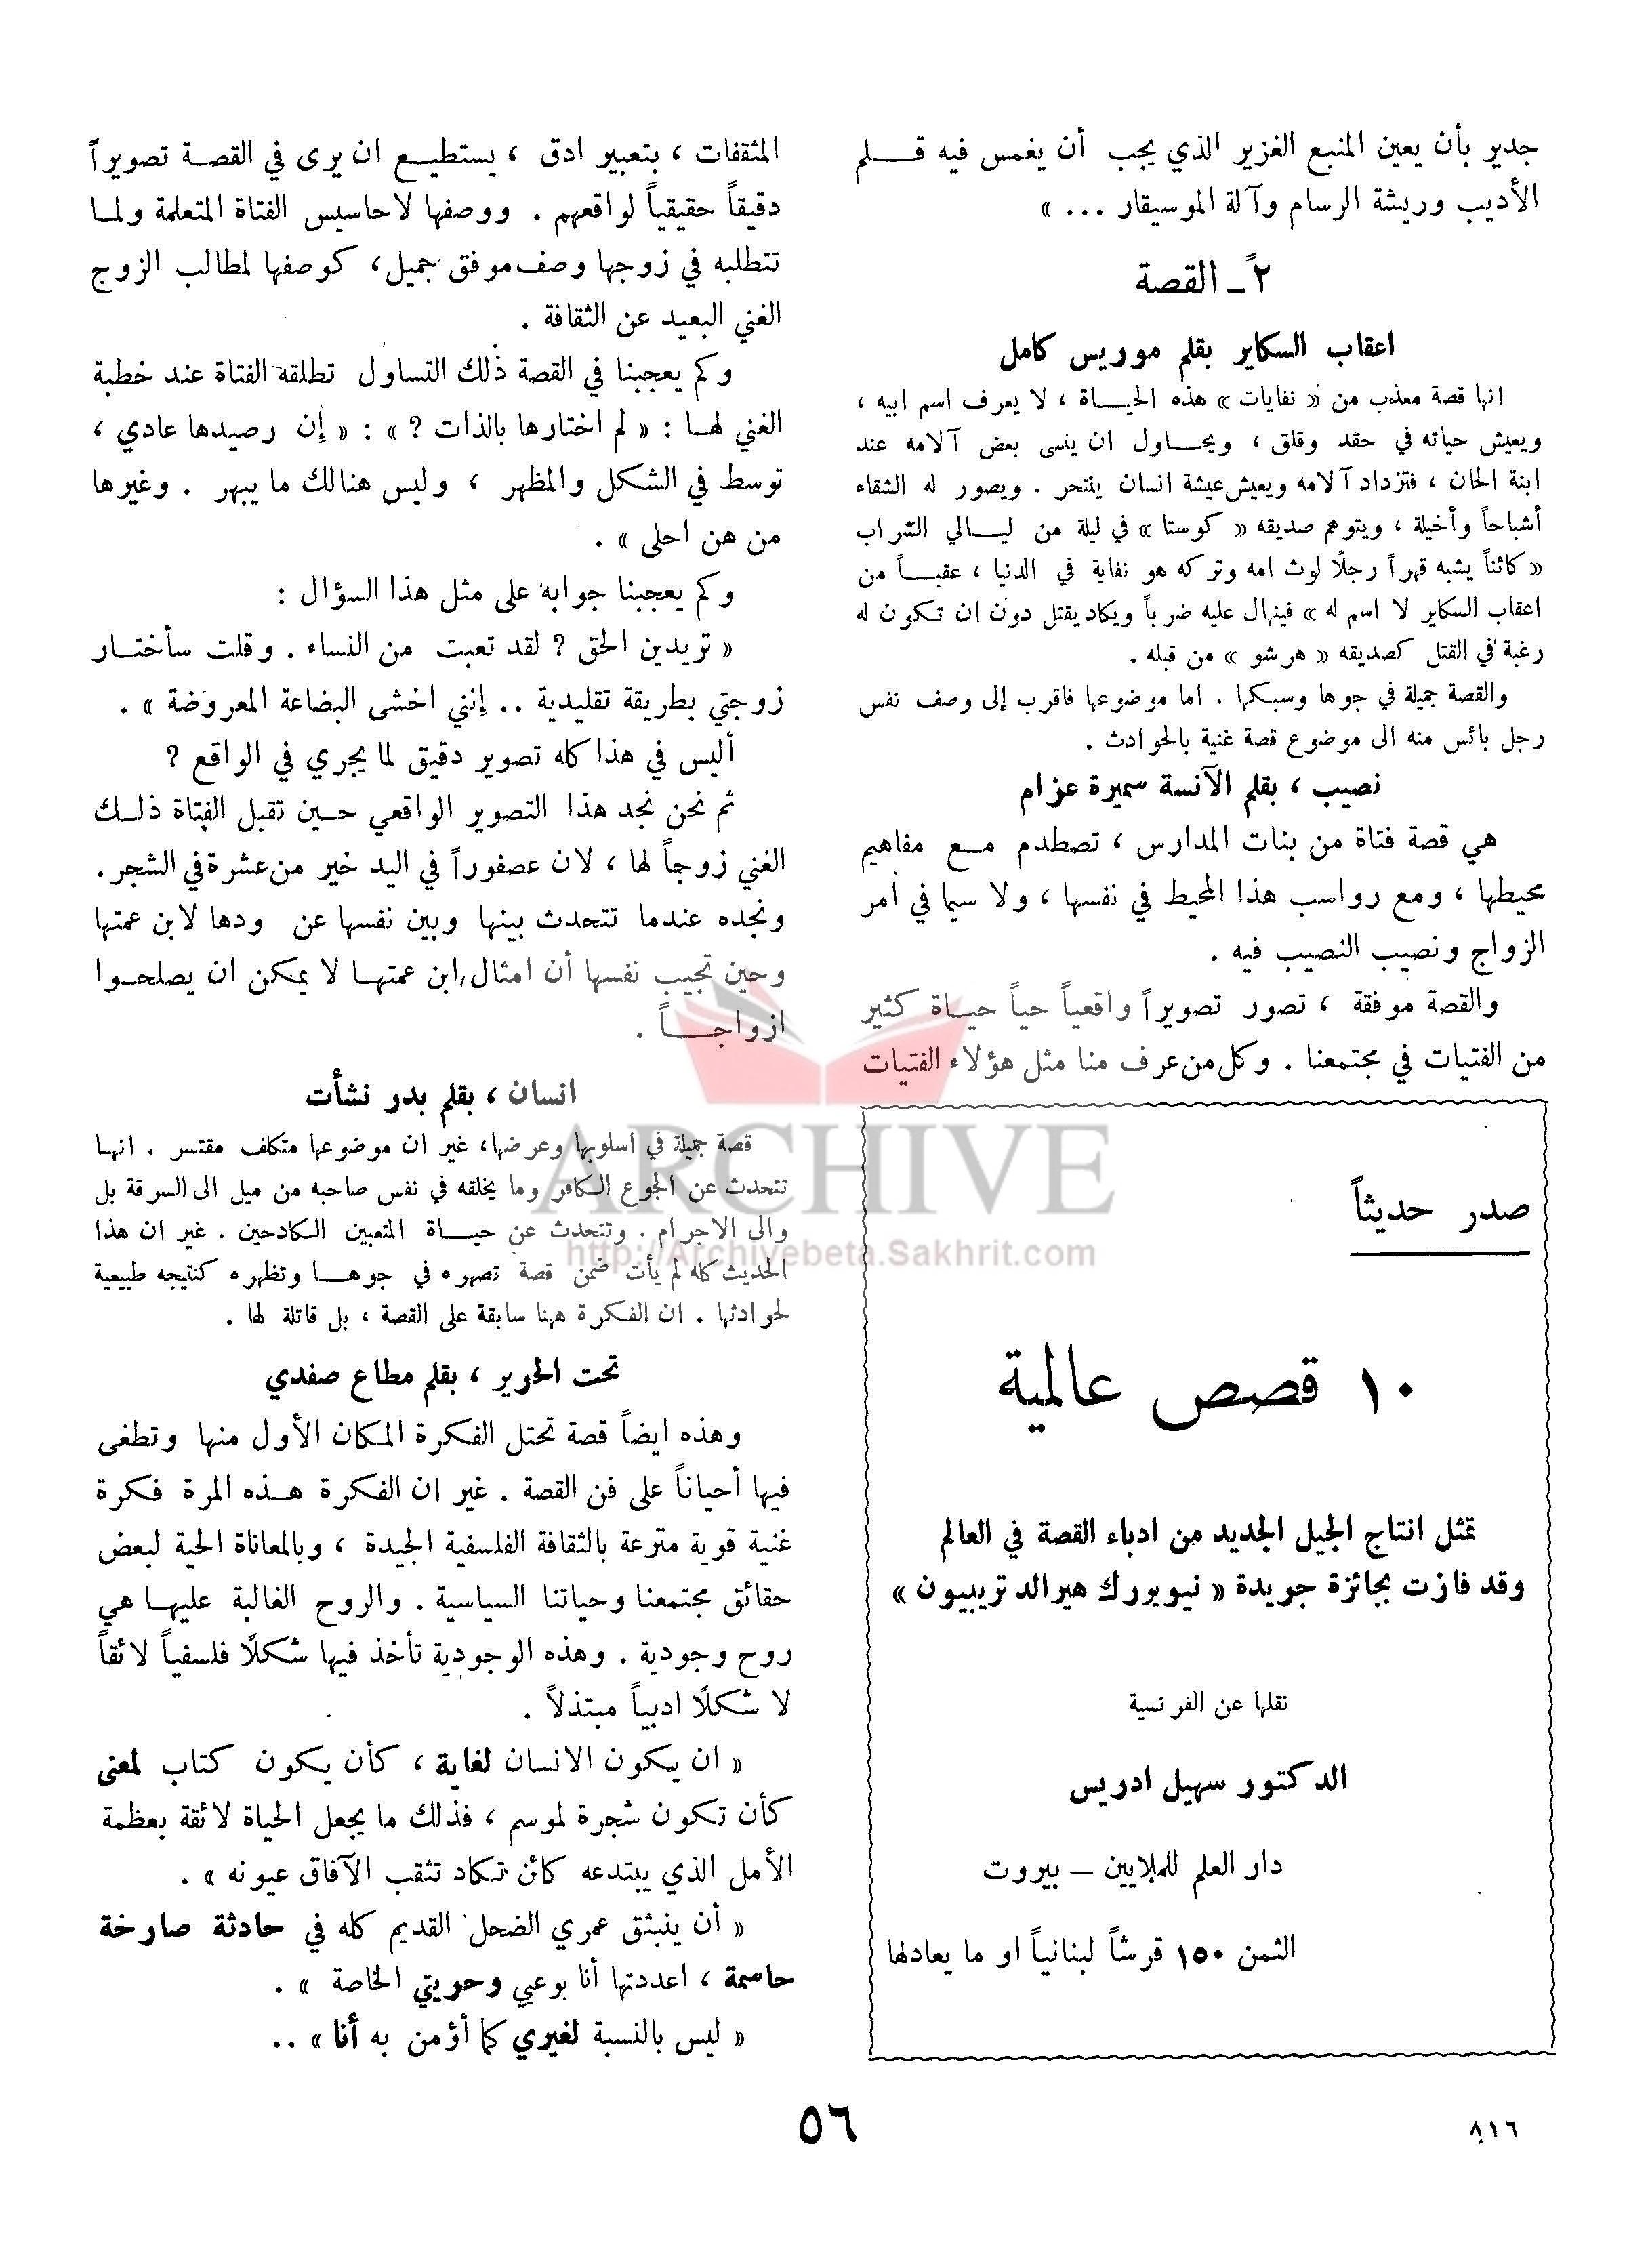 جدير بأن يعين المنبع الغزير الذي يجب أن يغمس فيه قلم
الأديب وريشة الرسام وآلة الموسيقار ... »
٢ً ـ القصة
اعقاب السكاير بقلم موريس كامل
انها قصة معذب من « نفايات » هذه الحياة ، لا يعرف اسم ابيه ،
ويعيش حياته في حقد وقلق ، ويحاول ان ينسى بعض آلامه عند
ابنة الحان ، فتزداد آلامه ويعيش عيشة انسان ينتحر . ويصور له الشقاء
أشباحاً وأخيلة ، ويتوهم صديقه « كوستا » في ليلة من ليالي الشراب
« كائناً يشبه قهراً رجلًا لوث امه وتركه هو نفاية في الدنيا ، عقباً من
اعقاب السكاير لا اسم له » فينهال عليه ضرباً ويكاد يقتل دون ان تكون له
رغبة في القتل كصديقه « هرشو » من قبله .
والقصة جميلة في جوها وسبكها . اما موضوعها فاقرب إلى وصف نفس
رجل بائس منه الى موضوع قصة غنية بالحوادث .
نصيب ، بقلم الآنسة سميرة عزام
هي قصة فتاة من بنات المدارس ، تصطدم مع مفاهيم
محيطها ، ومع رواسب هذا المحيط في نفسها ، ولا سيما في أمر
الزواج ونصيب النصيب فيه .
والقصة موفقة ، تصور تصويراً واقعياً حياً حياة كثير
من الفتيات في مجتمعنا . وكل من عرف منا مثل هؤلاء الفتيات
صدر حديثاً
١٠ قصص عالمية
تمثل انتاج الجيل الجديد من ادباء القصة في العالم
وقد فازت بجائزة جريدة « نيويورك هيرالد تريبيون »
نقلها عن الفرنسية
الدكتور سهيل ادريس
دار العلم للملايين ــ بيروت
الثمن ١٥٠ قرشاً لبنانياً او ما يعادلها
المثقفات ، بتعبير ادق ، يستطيع ان يرى في القصة تصويراً
دقيقاً حقيقياً لواقعهم . ووصفها لاحاسيس الفتاة المتعلمة ولما
تتطلبه في زوجها وصف موفق جميل ، كوصفها لمطالب الزوج
الغني البعيد عن الثقافة .
وكم يعجبنا في القصة ذلك التساول تطلقه الفتاة عند خطبة
الغني لها : « لم اختارها بالذات ? » : « إن رصيدها عادي ،
توسط في الشكل والمظهر ، وليس هنالك ما يبهر . وغيرها
من هن احلى » .
وكم يعجبنا جوابه على مثل هذا السؤال :
« تريدين الحق ? لقد تعبت من النساء . وقلت سأختار
زوجتي بطريقة تقليدية .. إنني اخشى البضاعة المعروضة » .
أليس في هذا كله تصوير دقيق لما يجري في الواقع ?
ثم نحن نجد هذا التصوير الواقعي حين تقبل الفتاة ذلك
الغني زوجاً لها ، لان عصفوراً في اليد خير من عشرة في الشجر .
ونجده عندما تتحدث بينها وبين نفسها عن ودها لابن عمتها
وحين تجيب نفسها أن امثال ابن عمتها لا يمكن ان يصلحوا
ازواجاً .
انسان ، بقلم بدر نشأت
قصة جميلة في اسلوبها وعرضها، غير ان موضوعها متكلف مقتسر . انها
تتحدث عن الجوع الكافر وما يخلقه في نفس صاحبه من ميل الى السرقة بل
والى الاجرام . وتتحدث عن حياة المتعبين الكادحين . غير ان هذا
الحديث كله لم يأت ضمن قصة تصهره في جوها وتظهره كنتيجه طبيعية
لحوادثها . ان الفكرة هنا سابقة على القصة ، بل قاتلة لها .
تحت الحرير ، بقلم مطاع صفدي
وهذه ايضاً قصة تحتل الفكرة المكان الأول منها وتطغى
فيها أحياناً على فن القصة . غير ان الفكرة هذه المرة فكرة
غنية قوية مترعة بالثقافة الفلسفية الجيدة ، وبالمعاناة الحية لبعض
حقائق مجتمعنا وحياتنا السياسية . والروح الغالبة عليها هي
روح وجودية . وهذه الوجودية تأخذ فيها شكلًا فلسفياً لائقاً
لا شكلًا ادبياً مبتذلاً .
« ان يكون الانسان لغاية ، كأن يكون كتاب لمعنى
كأن تكون شجرة لموسم ، فذلك ما يجعل الحياة لائقة بعظمة
الأمل الذي يبتدعه كائن تكاد تثقب الآفاق عيونه » .
« أن ينبثق عمري الضحل القديم كله في حادثة صارخة
حاسمة ، اعددتها أنا بوعيي وحريتي الخاصة » .
« ليس بالنسبة لغيري كما أؤمن به أنا » ..
٥٦
٨١٦
ARCHIVE
http://Archivebeta.Sakhrit.com